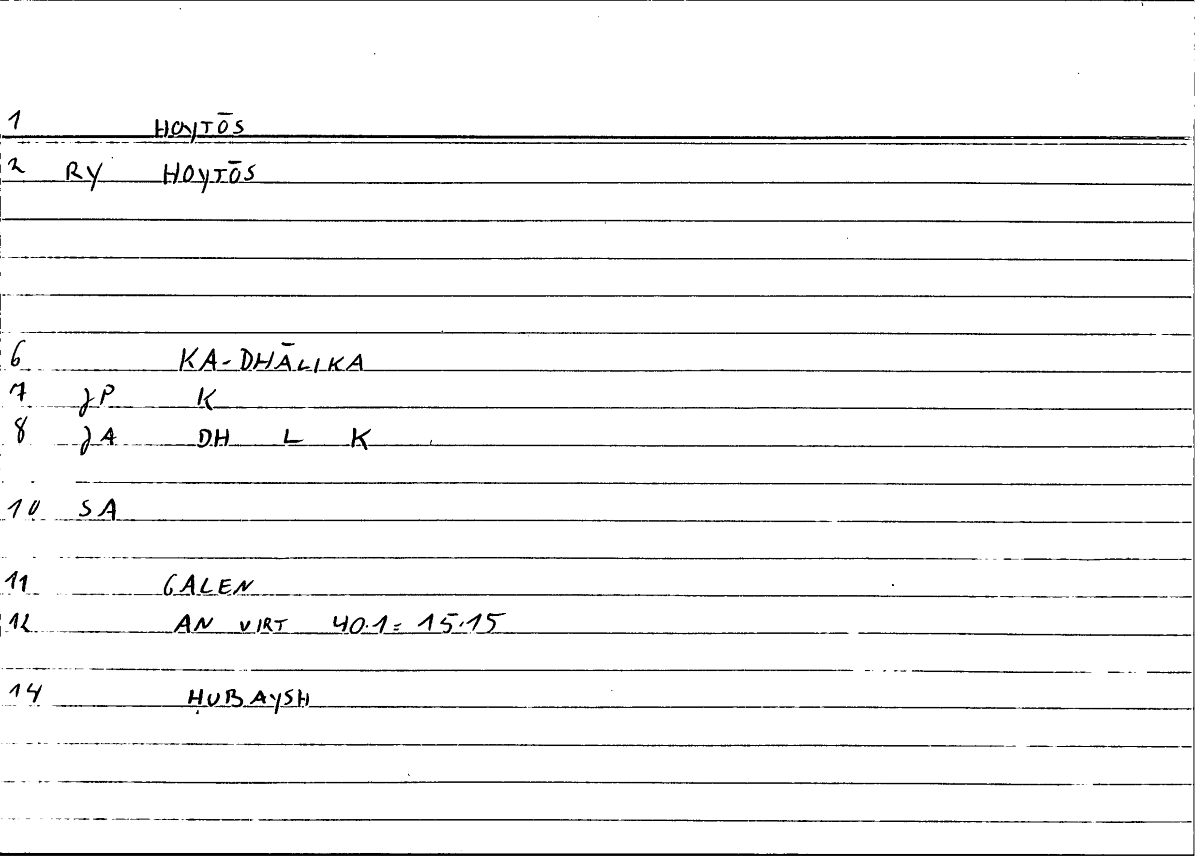 1 HOYTŌS
2 RY HOYTŌS
6 KA-DHĀLIKA
7 JP K
8 JA DH L K
10 SA
11 GALEN
12 AN VIRT 40.1= 15.15
14 ḤUBAYSH